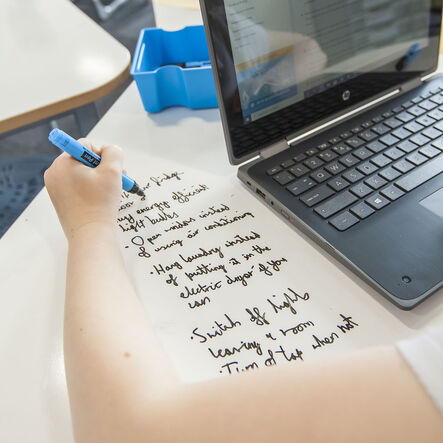 fridge
energy efficient
light bulbs
Open windows instead
of using air conditioning
• Hang laundry instead
of putting it in the
electric dryer if you
can
• Switch off lights
leaving a room
• Turn of tap when not
hp